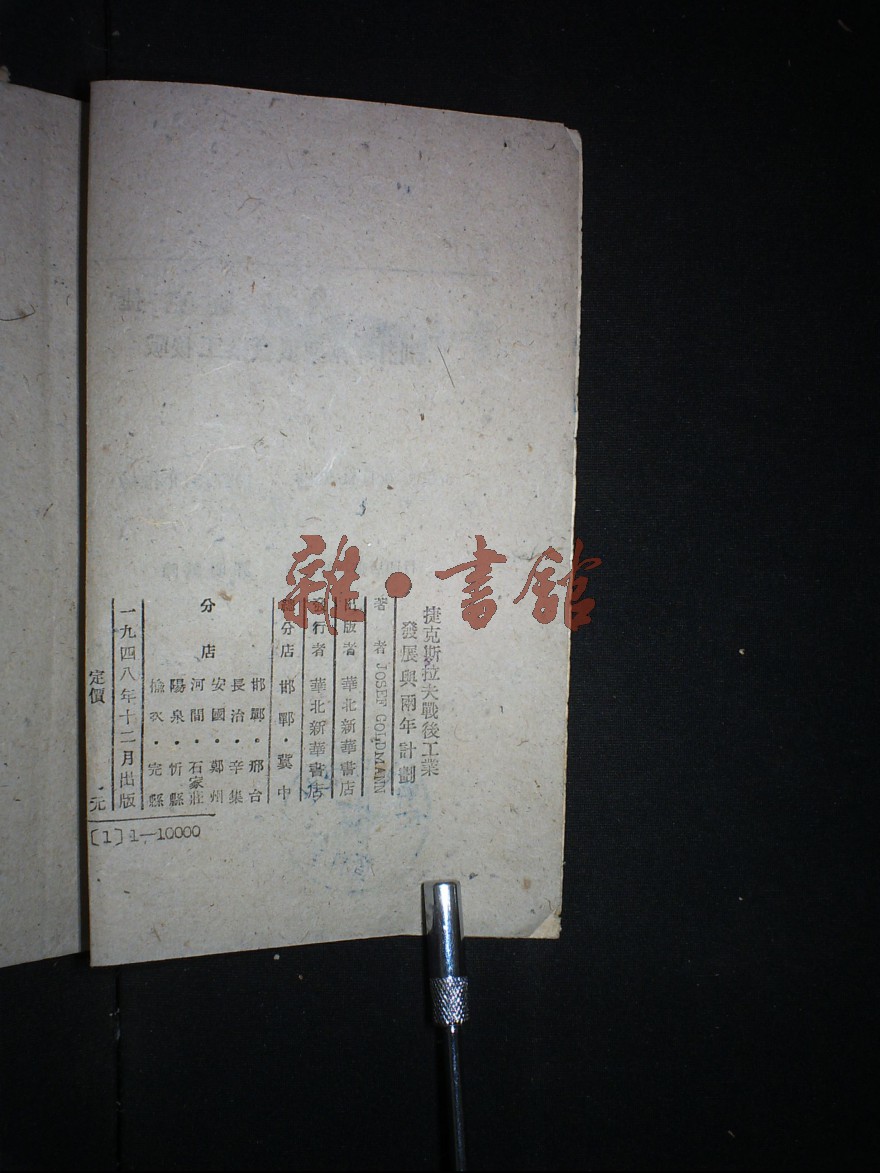 捷克斯拉夫戰後工業
發展與兩年計劃
著者 JOSEF GOLDMANN
出版者 華北新華書店
發行者 華北新華書店
總分店 邯鄲·冀中
分店
邯鄲·邢台
長治·辛集
安國·鄭州
河間·石家莊
陽泉·忻縣
榆次·完縣
一九四八年十二月出版
定價 元
[1]1—10000
雜·書館